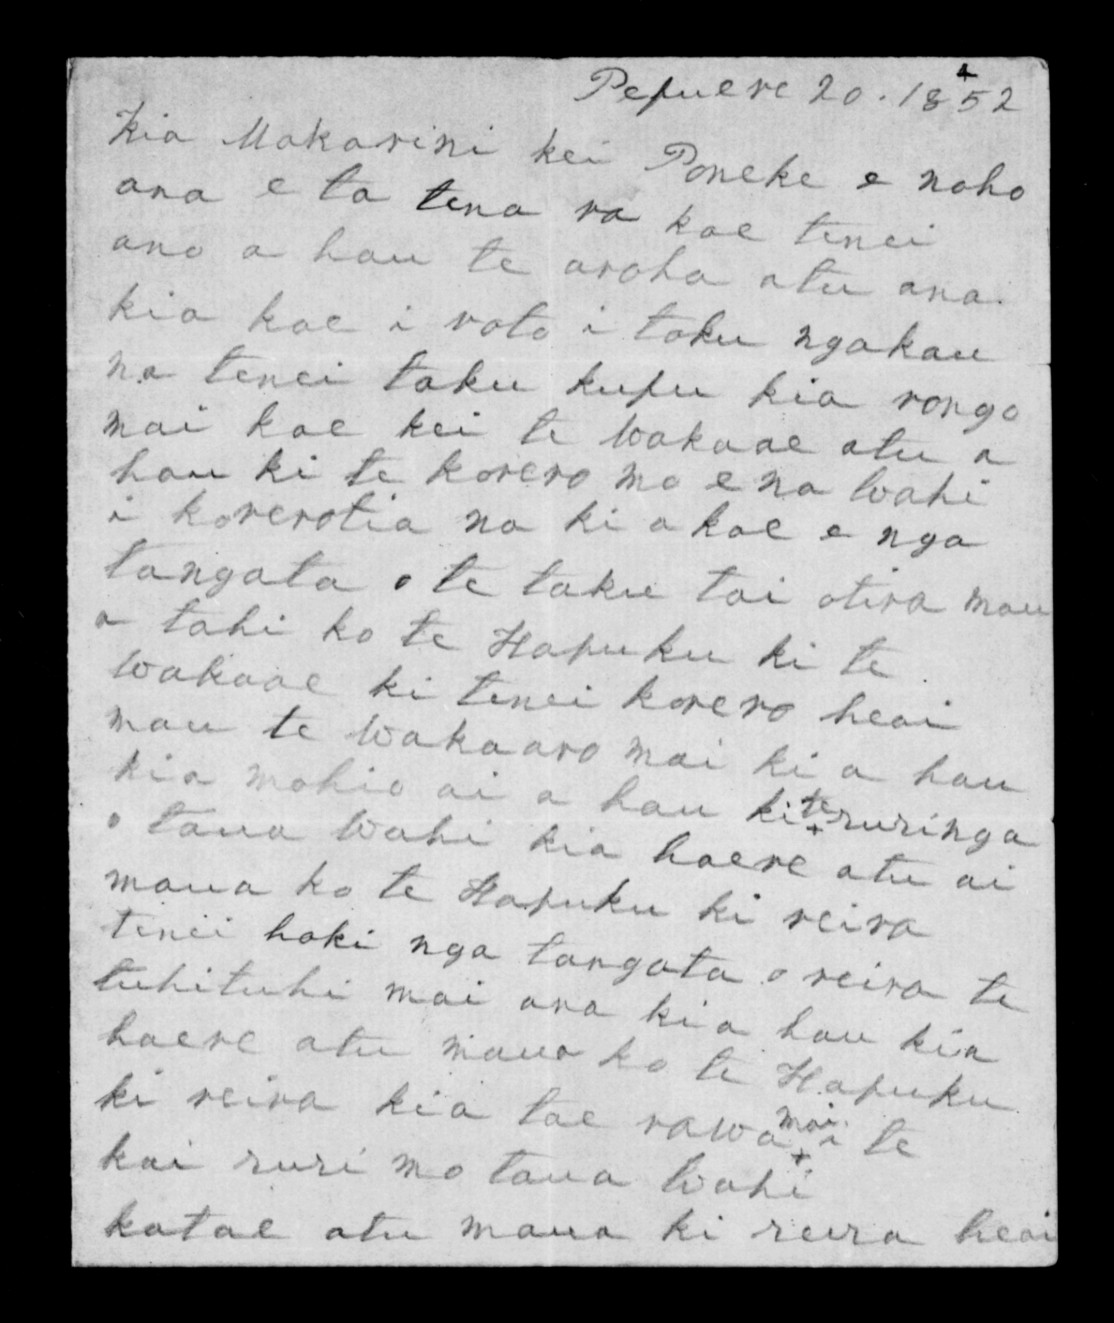 Pepuere 20. 1852
4
Kia Makarini kei Poneke e noho
ana e ta tena ra koe tenei
ano a hau te aroha atu ana.
kia koe i roto i toku ngakau
na tenei taku kupu kia rongo
mai koe kei te wakaae atu a
hau ki te korero mo ena wahi
i korerotia na ki a koe e nga
tangata o te taku tai otira mau
a tahi ko te Hapuku ki te
wakaae ki tenei korero heai
mau te wakaaro mai ki a hau
kia mohio ai a hau ki te ruringa
o taua wahi kia haere atu ai
maua ko te Hapuku ki reira
tenei hoki nga tangata o reira te
tuhituhi mai ana kia hau kia
haere atu maua ko te Hapuku
ki reira kia tae rawa mai i te
kai ruri mo taua wahi
katae atu maua ki reira heai